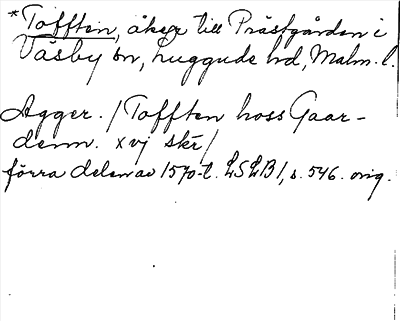 *Tofften, åker till Prästgården i
Väsby sn, Luggude hd, Malm. l.
Agger. / Tofften hoss Gaar-
denn. xvj skr /
förra delen av 1570-t. LSLB 1, s. 546. orig.